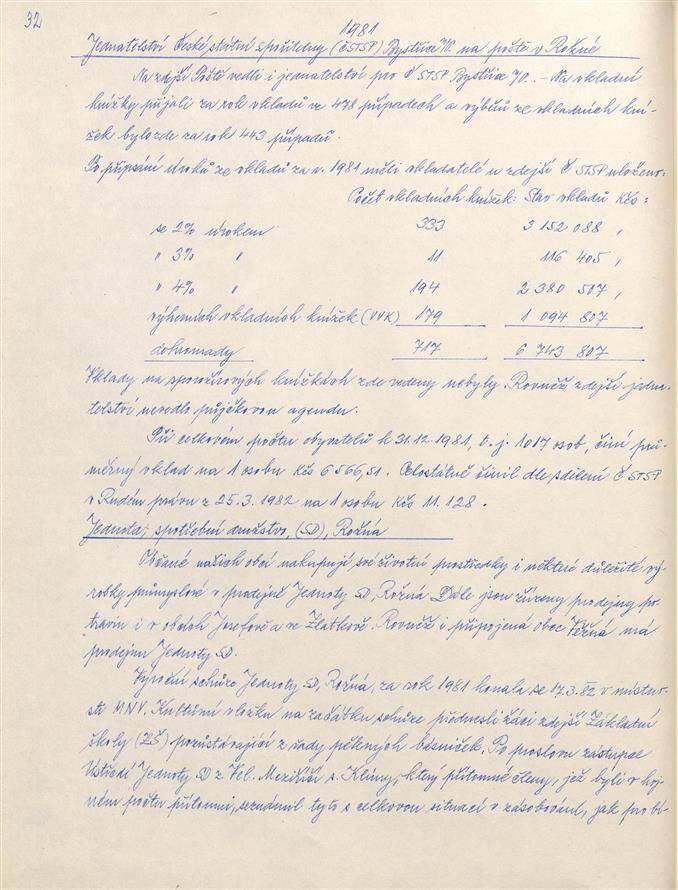 32
1981
Jednatelství České státní spořitelny (ČSTSP) Bystřice n/P. na poště v Rožné
Na zdejší Poště vedli i jednatelství pro ČSTSP Bystřice n/P. - Na vkladní
knížky přijali za rok vkladů ve 478 případech a výběrů ze vkladních kní-
žek bylo zde za rok 443 případů.
Po připsání úroků ze vkladů za r. 1981 měli vkladatelé u zdejší ČSTSP uloženo:
Počet vkladních knížek: Stav vkladů Kčs:
se 2% úrokem 333 3 152 088,
" 3% " 11 116 405,
" 4% " 194 2 380 507,
výherních vkladních knížek (VVK) 179 1 094 807
dohromady 717 6 743 807
Vklady na sporožirových knížkách zde vedeny nebyly. Rovněž zdejší jedna-
telství nevedlo půjčkovou agendu.
Při celkovém počtu obyvatelů k 31.12.1981, t.j. 1017 osob, činí prů-
měrný vklad na 1 osobu Kčs 6 566,51. Celostátně činil dle sdělení ČSTSP
v Rudém právu z 25.3.1982 na 1 osobu Kčs 11.128.
Jednota, spotřební družstvo, (SD), Rožná
Občané našich obcí nakupují své životní prostředky i některé důležité vý-
robky průmyslové v prodejně Jednoty SD, Rožná. Dále jsou zřízeny prodejny po-
travin i v obcích Josefově a ve Zlatkově. Rovněž i připojená obec Věžná má
prodejnu Jednoty SD.
Výroční schůze Jednoty SD, Rožná, za rok 1981 konala se 17.3.82 v místno-
sti MNV. Kulturní vložku na začátku schůze přednesli žáci zdejší Základní
školy (ZŠ) pozůstávající z řady pěkných básniček. Po proslovu zástupce
Ústředí Jednoty SD z Vel. Meziříčí s. Klímy, který přítomné členy, jež byli v hoj-
ném počtu přítomni, seznámil tyto s celkovou situací v zásobování, jak probí-